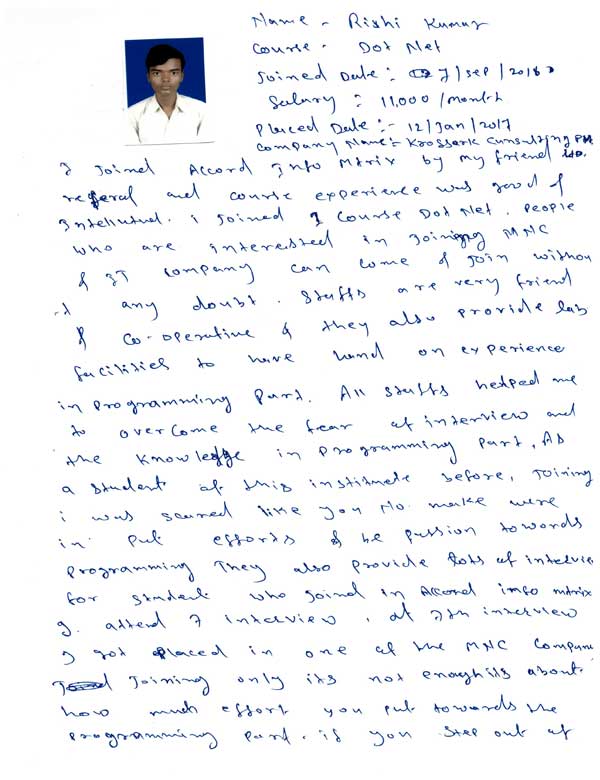 Name - Rishi Kumar
Course - Dot Net
Joined Date :- 07/sep/2016
Salary :- 11,000 /month
Placed Date :- 12/Jan/2017
Company Name:- Krossark Cunsulting Pvt
Ltd.
I Joined Accord Info Mtrix by my friend
referal and course experience was good &
Intellutual. i Joined I Course Dot Net. People
who are interested in Joining MNC
& IT company can come & Join withou
-t any doubt. Staffs are very friend
& co-operative & they also provide lab
facilities to have hand on experience
in programming Part. All staffs helped me
to overcome the fear of interview and
the knowledge in programming part, As
a student of this institute before, Joining
i was scared like you No. make were
in put efforts & be passion towards
programming They also provide lots of intelvie
for student who Joind in Accord info mtrix
I. attend 7 interview, at 7th interview
I got placed in one of the MNC Compan
Joining only its not enough its about
how much effort you put towards the
programming part. if you step out of